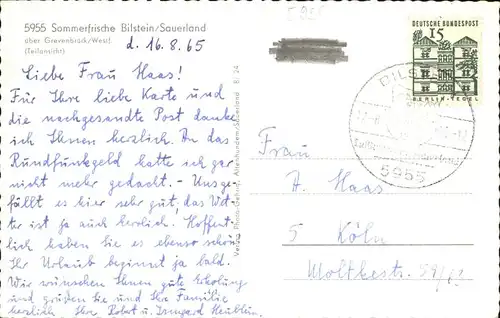 5955 Sommerfrische Bilstein/Sauerland
über Grevenbrück/Westf.
(Teilansicht)
d. 16.8.65
Liebe Frau Haas!
Für Ihre liebe Karte und
die nachgesandte Post danke
ich Ihnen herzlich. An das
Rundfunkgeld hatte ich gar
nicht mehr gedacht. - Uns ge-
fällt es hier sehr gut, das Wet-
ter ist ja auch herrlich. Hoffent-
lich haben Sie es ebenso schön.
Ihr Urlaub beginnt ja bald.
Wir wünschen Ihnen gute Erholung
und grüßen Sie und Ihre Familie
herzlich, Ihre Robert u. Irmgard
DEUTSCHE BUNDESPOST
15
BERLIN-TEGEL
5955
Frau
A. Haas
5 Köln
Moltkestr.